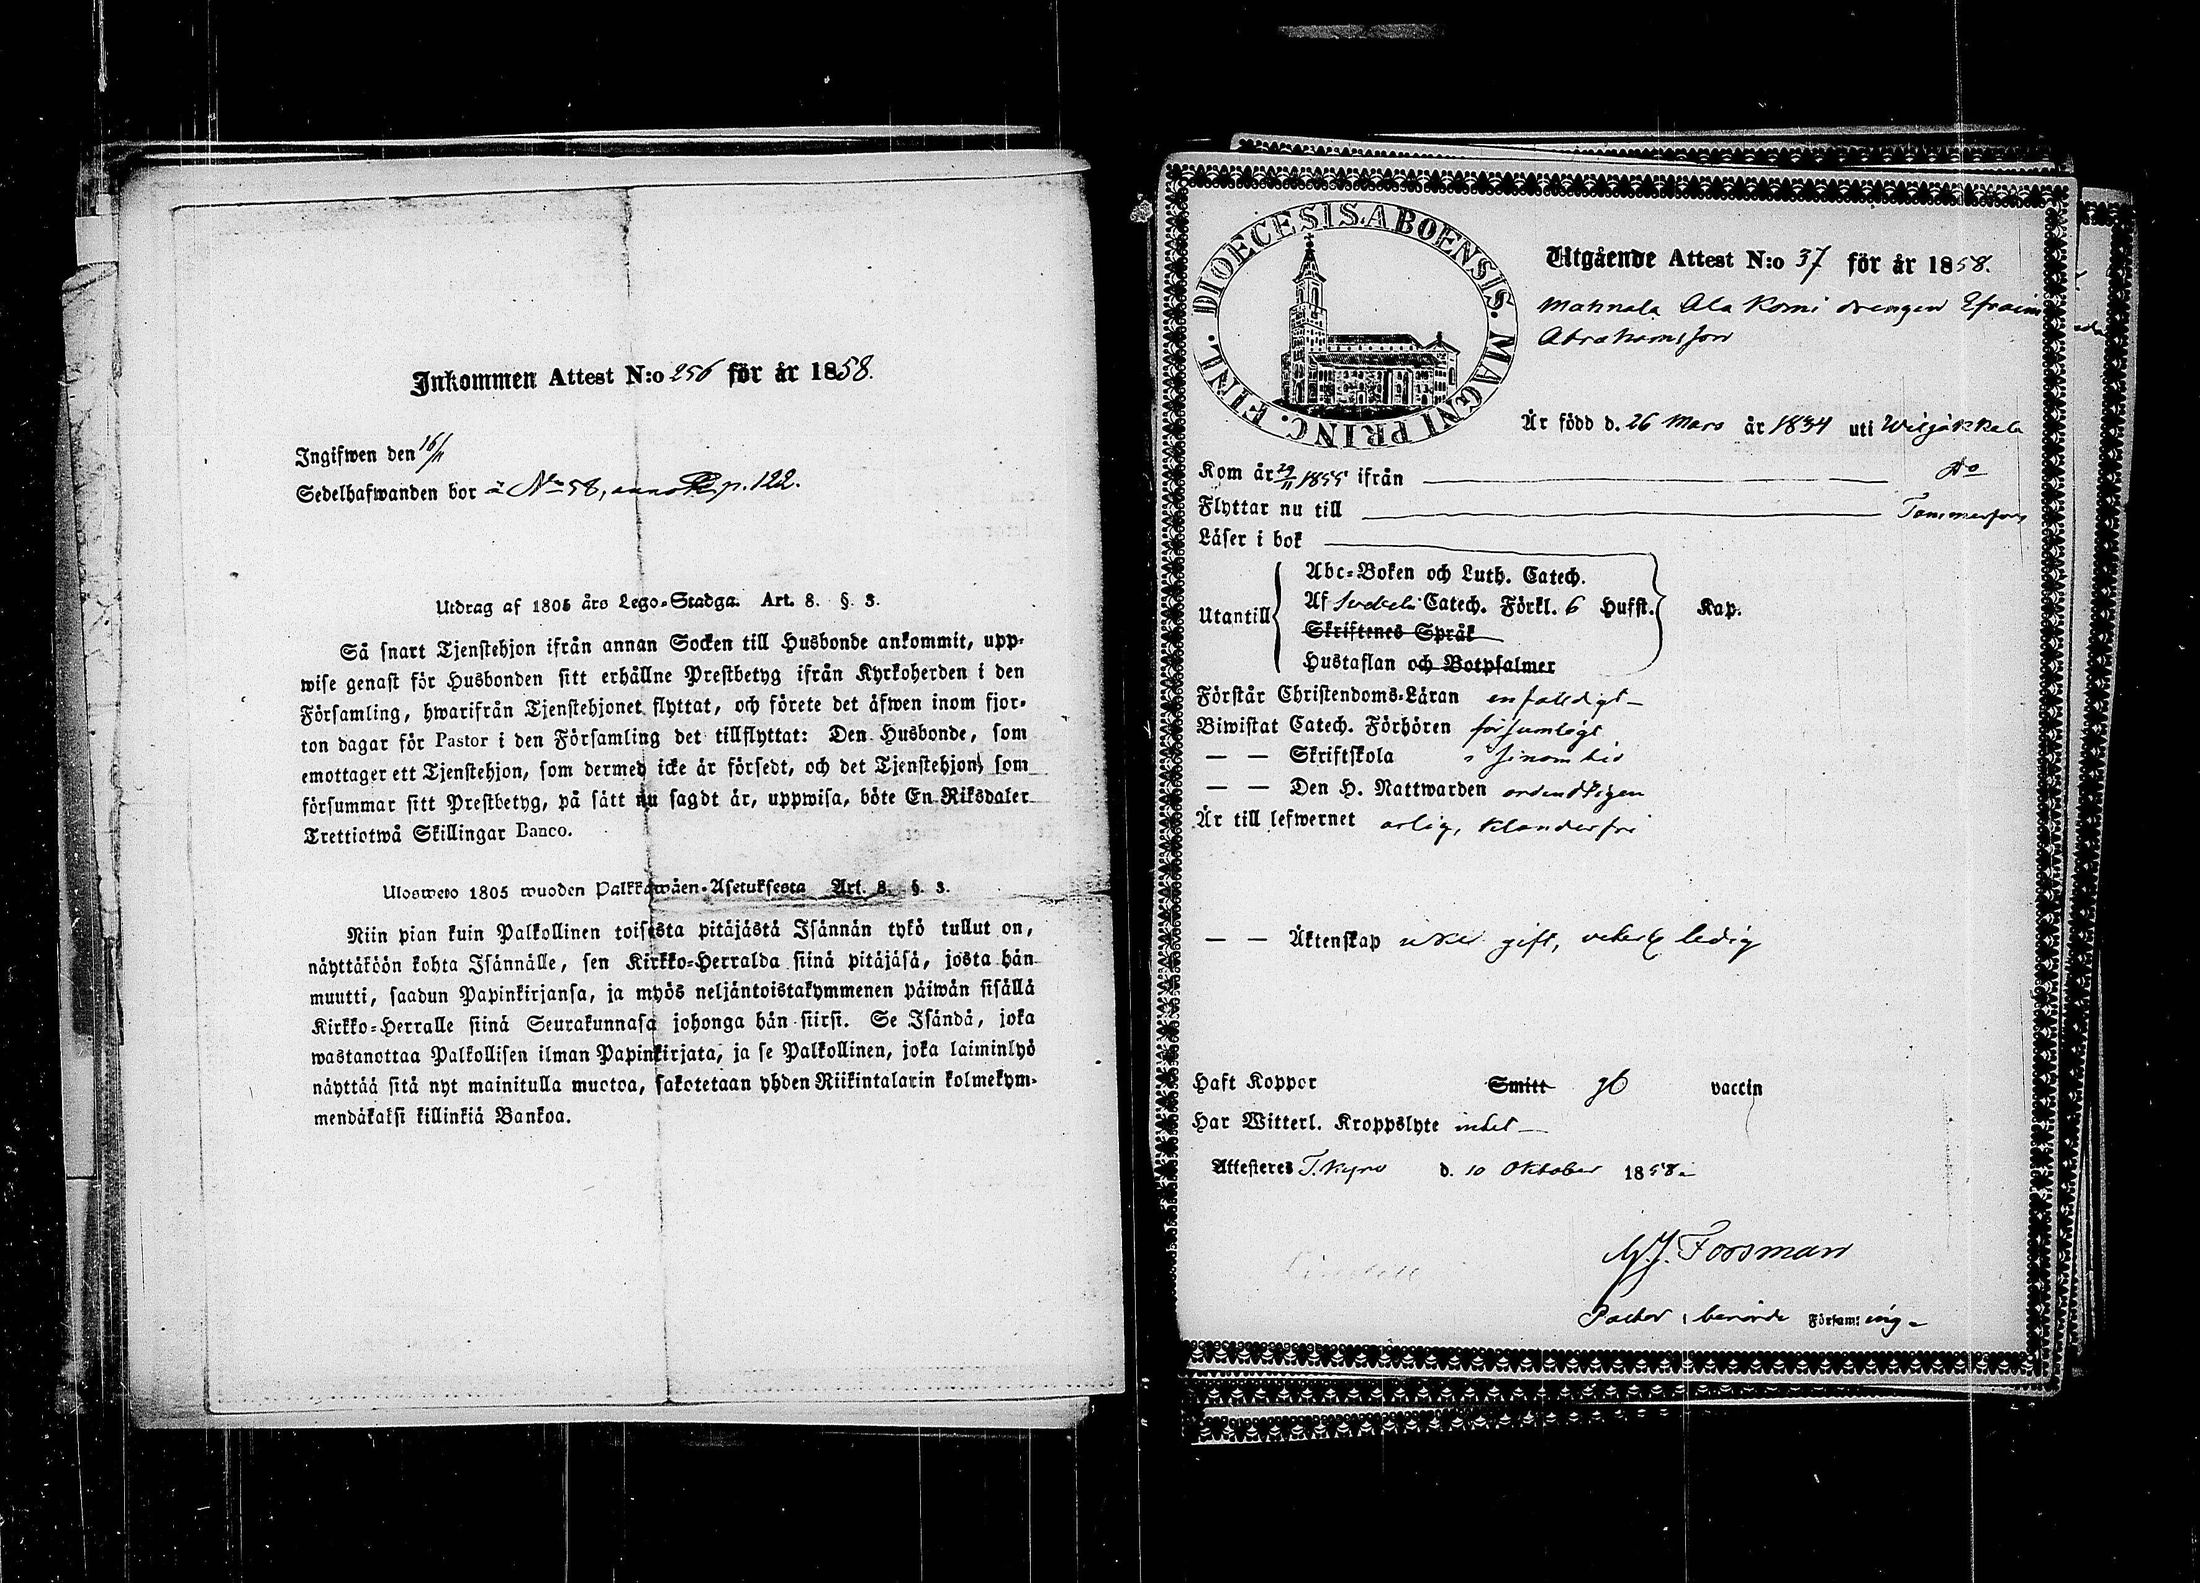 Inkommen Attest N:o 256 för år 1858.
Ingifwen den 16/11
Sedelhafwanden bor å No 58, p. 122.
Utdrag af 1805 års Lego-Stadga. Art. 8. §. 3.
Så snart Tjenstehjon ifrån annan Socken till Husbonde ankommit, upp-
wise genast för Husbonden sitt erhållne Prestbetyg ifrån Kyrkoherden i den
Församling, hwarifrån Tjenstehjonet flyttat, och förete det äfwen inom fjor-
ton dagar för Pastor i den Församling det tillflyttat: Den Husbonde, som
emottager ett Tjenstehjon, som dermed icke är försedt, och det Tjenstehjon, som
försummar sitt Prestbetyg, på sätt nu sagdt är, uppwisa, böte En Riksdaler
Trettiotwå Skillingar Banco.
Ulosweto 1805 wuoden Palkkawäen-Asetuksesta Art. 8. §. 3.
Niin pian kuin Palkollinen toisesta pitäjästä Isännän tykö tullut on,
näyttäköön kohta Isännälle, sen Kirkko-Herralda siinä pitäjäsä, josta hän
muutti, saadun Papinkirjansa, ja myös neljäntoistakymmenen päiwän sisällä
Kirkko-Herralle siinä Seurakunnasa johonga hän siirsi. Se Isändä, joka
wastanottaa Palkollisen ilman Papinkirjata, ja se Palkollinen, joka laiminlyö
näyttää sitä nyt mainitulla muotoa, sakotetaan yhden Riikintalarin kolmekym-
mendäkaksi killinkiä Bankoa.
DIOECESIS. ABOENSIS. MAGNI PRINC. FINL.
Utgående Attest N:o 37 för år 1858.
Mahnala Ala Komi drengen Efraim
Abrahamsson
Är född d. 26 Mars år 1834 uti Wiljakkala
Kom år 29/11 1855 ifrån do
Flyttar nu till Tammerfors
Läser i bok
Abc-Boken och Luth. Catech.
Utantill Af Svebelii Catech. Förkl. 6 Hufst. Kap.
Skriftenes Språk
Hustaflan och Botpsalmer
Förstår Christendoms-Läran enfaldigt
Biwistat Catech. Förhören försumligt
— — Skriftskola i sinom tid
— — Den H. Nattwarden ordentligen
Är till lefwernet ärlig, klanderfri
— — Äktenskap icke gift, ledig
Haft Koppor Smitt gb vaccin
Har Witterl. Kroppslyte intet
Attesteres T. Kyro d. 10 Oktober 1858.
Forsman
Pastor i berörde Församling